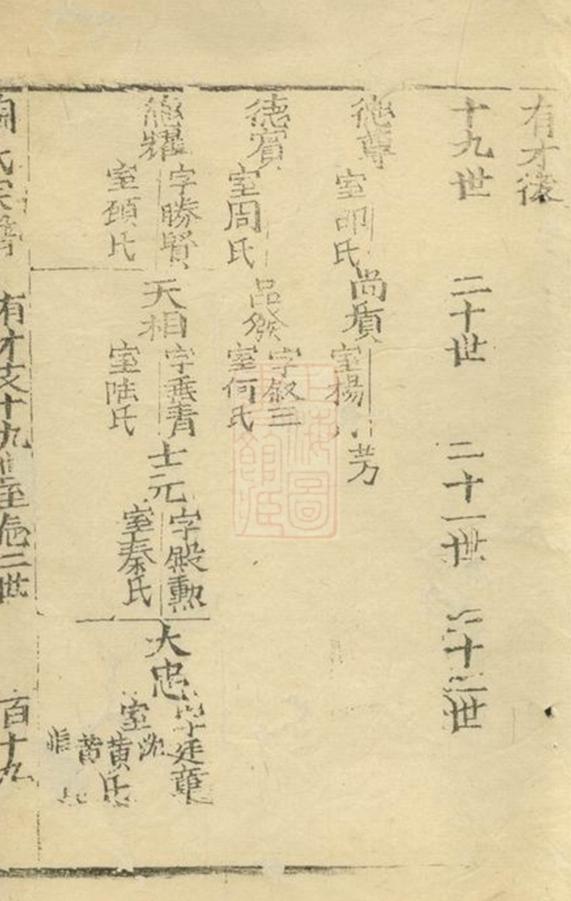 有才後
十九世 二十世 二十一世 二十二世
德尊 室邵氏 尚質 室楊氏 芳
德賓 室周氏 品發 字叙三 室何氏
德耀 字勝賢 室頋氏 天相 字垂青 室陆氏 士元 字殿勲 室秦氏 大忠 字廷章 室沈 黄氏
氏宗譜 有才支十九世至二世 百十九